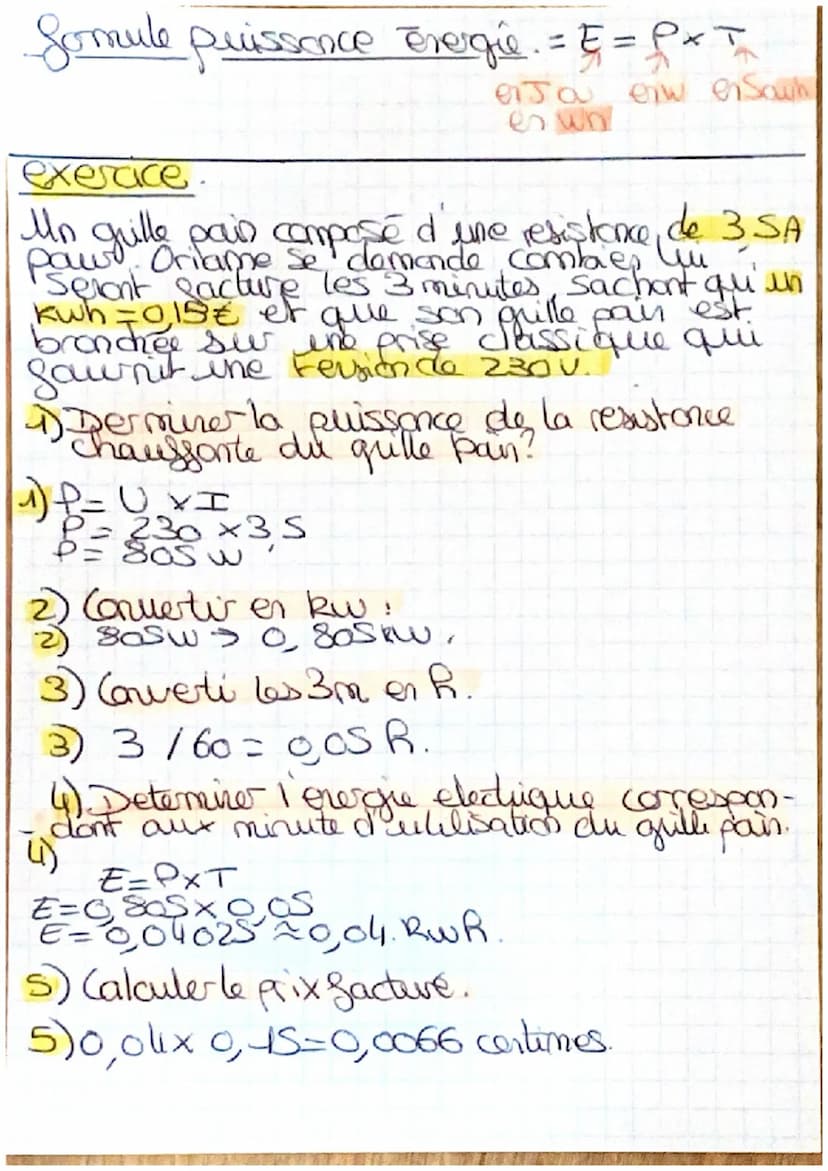 formule puissance énergie. = E = P x T
en J ou en W en S ou h
en Wh
exercice.
Un grille pain composé d'une resistance de 3,5A
pour. Oriame se demande combien lui
seront facturé les 3 minutes, sachant qu'un
Kwh = 0,15€ et que son grille pain est
branchée sur une prise classique qui
fournit une tension de 230V.
1) Derminer la puissance de la resistance
chauffante du grille pain?
1) P = U x I
P = 230 x 3,5
P = 805 w
2) Convertir en kw :
2) 805w → 0,805kw.
3) Converti les 3m en h.
3) 3 / 60 = 0,05 h.
4). Determiner l'energie electrique correspon-
- dant aux minute d'utilisation du grille pain.
4)
E = P x T
E = 0,805 x 0,05
E = 0,04025 ≈ 0,04. kwh.
5) Calculer le prix facturé.
5) 0,04 x 0,15 = 0,0066 centimes.